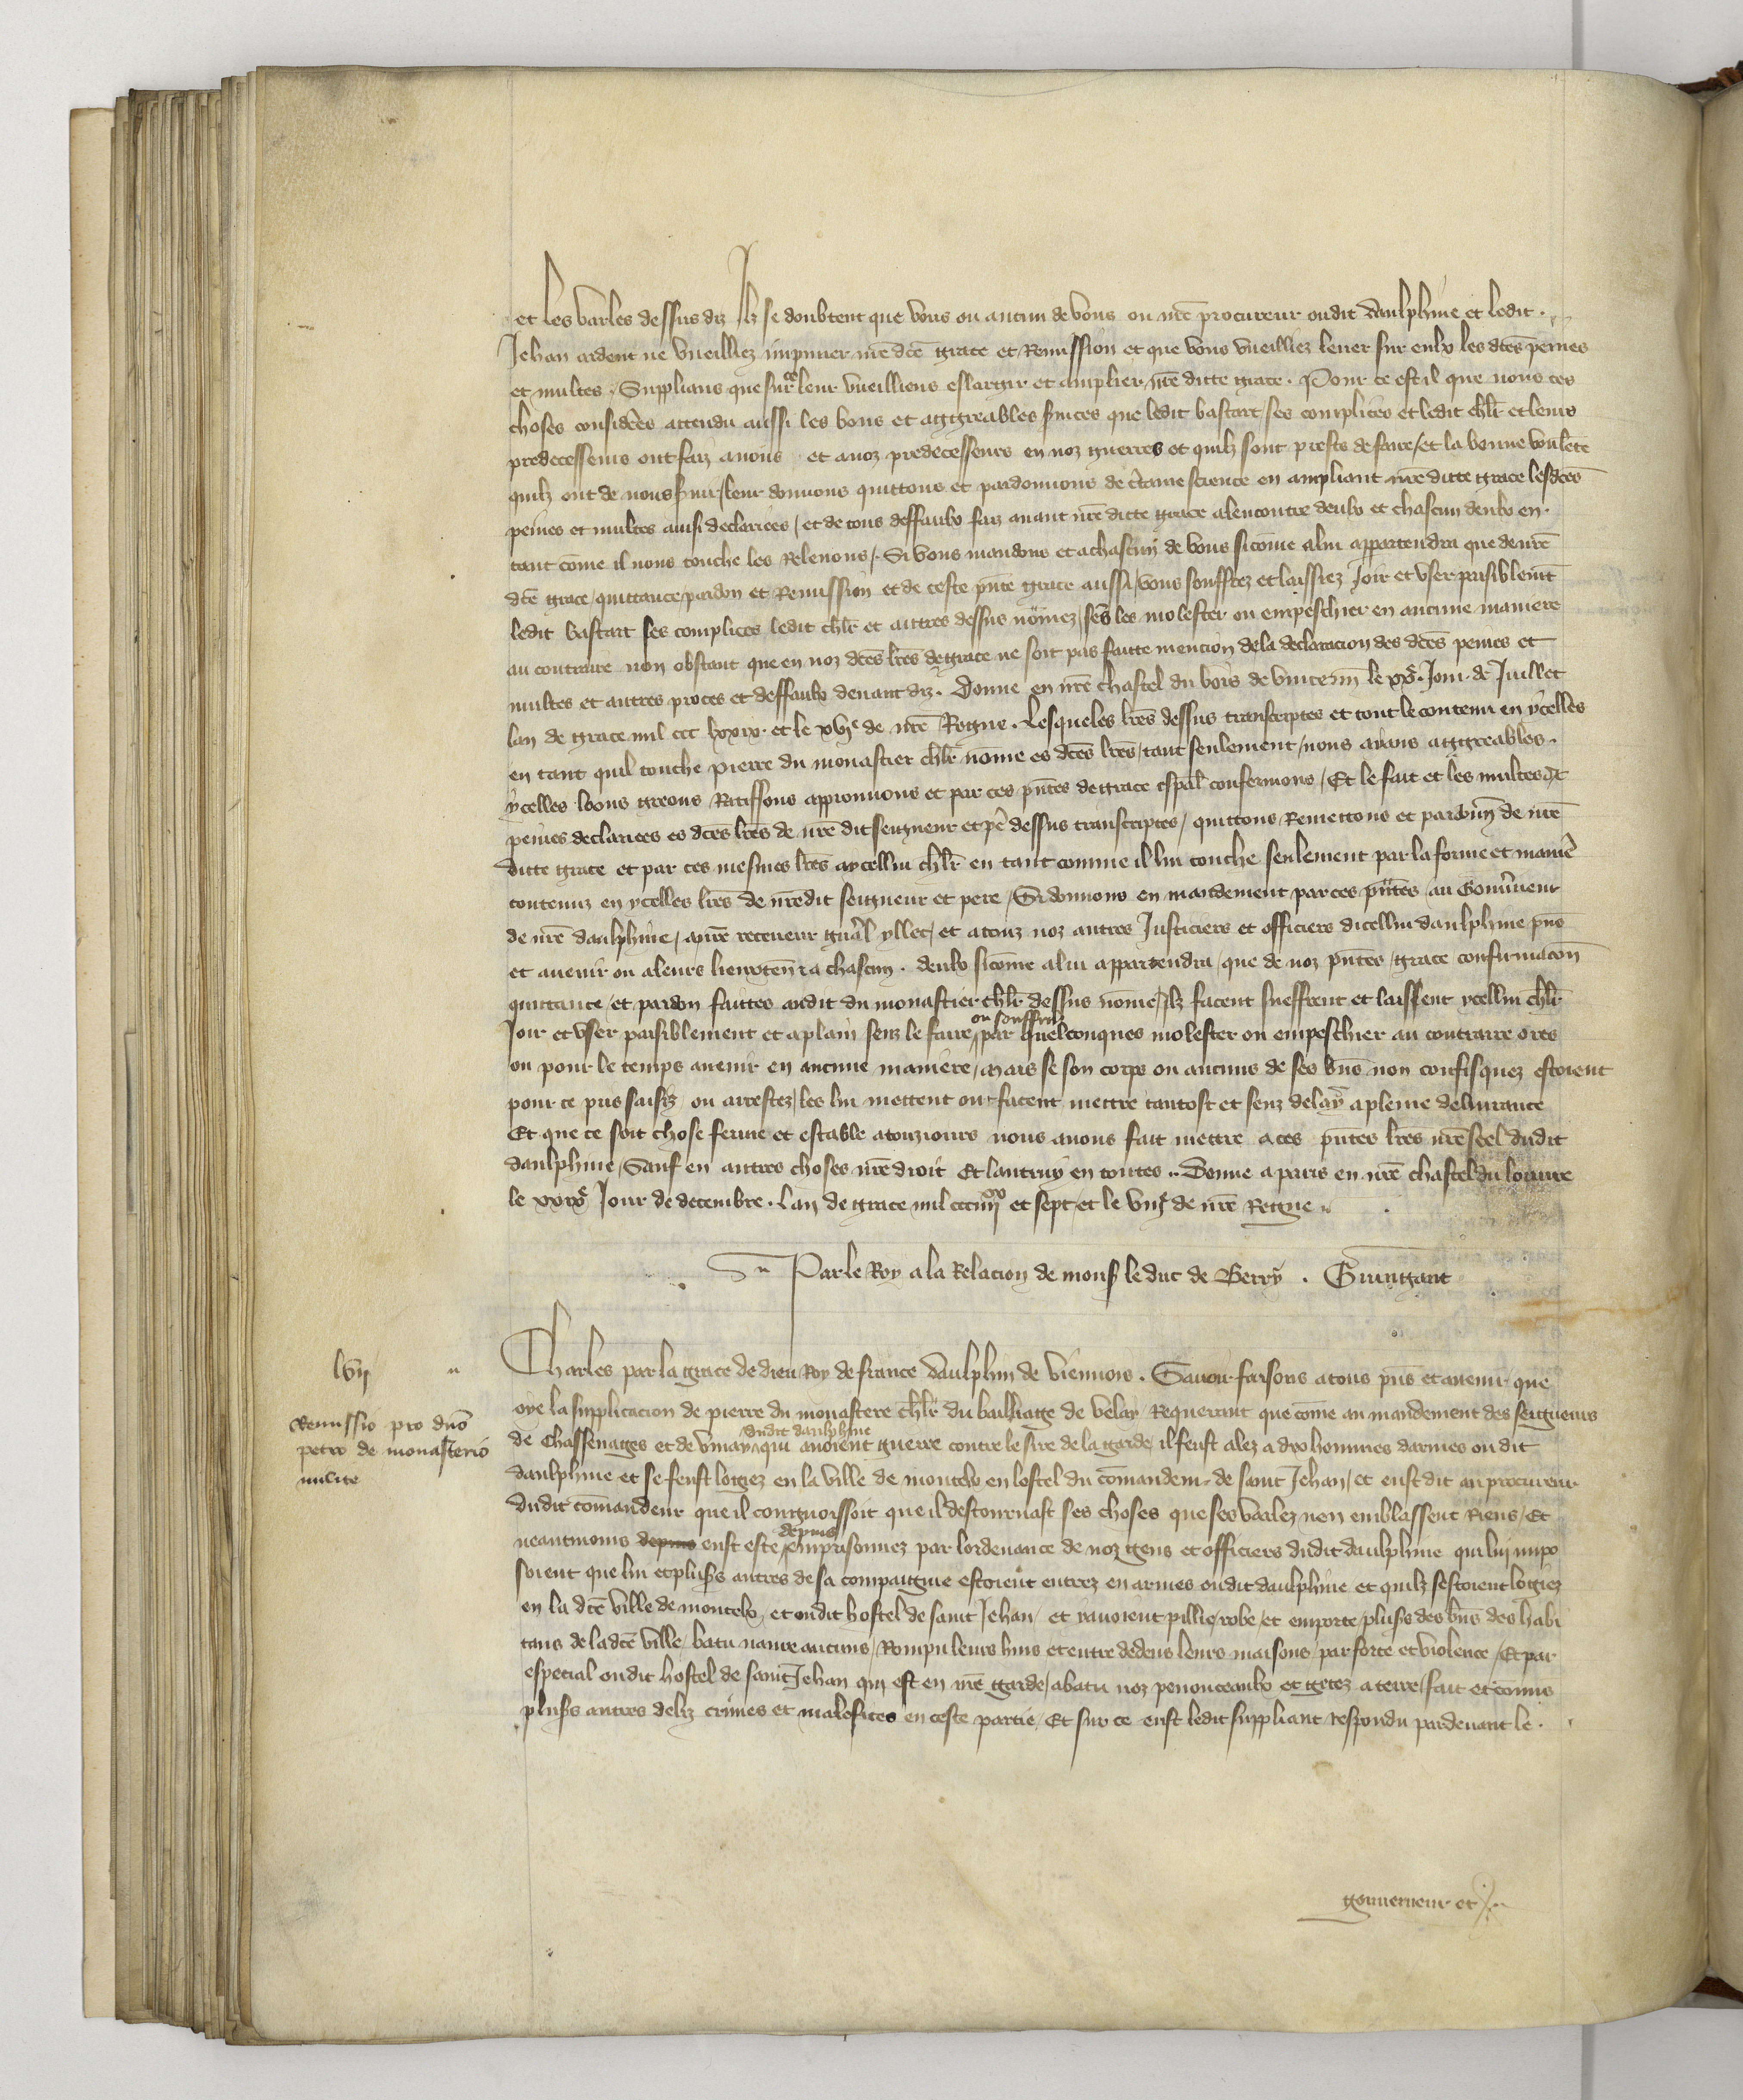 et les varles dessus diz Ilz se doubtent que vous ou aucun de vous ou nr̄e procureur oudit daulphine et ledit .
Jehan ardent ne vueilliez impuner nr̄e dc̄e grace et Remission et que vous vueilliez lever sur eulx les dc̄es peines
et multes / Supplians que sur ce leur vueilliens eslargir et amplier nr̄e ditte grace . Pour ce est il que nous ces
choses considerēs attendu aussi les bons et aggreables s̄vices que ledit bastart / ses complices et ledit chl̄r et leurs
predecesseurs ont faiz a nous et a noz predecesseurs en noz guerres et quilz sont prests de faire / et la bonne voulēte
quilz ont de nous s̄vir / leur donnons quittons et pardonnons de c̄taine science en ampliant nr̄e ditte grace lesdc̄es
peines et multes ainsi declariees / et de tous deffaulx faiz avant nr̄e ditte grace alencontre deulx et chascun deulx en .
tant cōme il nous touche les Relevons / . Si vous mandons et a chascun de vous si cōme a lui appartendra que de nr̄e
dc̄e grace / quittance pardon et Remission et de ceste pn̄te grace aussi / vous souffrez et laissiez Joir et user paisiblemt̄
ledit bastart ses complices ledit chl̄r et autres dessus nōmez / sēs les molester ou empeschier en aucune maniere
au contraire non obstant que en noz dc̄es lr̄es de grace ne soit pas faitte mencion de la declaracion des dc̄es peines et
multes et autres proces et deffaulx devant diz . Donne en nr̄e chastel du bois de vincenn̄ le xxe . Jour de Juillet
lan de grace mil ccc lxxix . et le xvje de nr̄e Regne . Lesqueles lr̄es dessus transcriptes et tout le contenu en ycelles
en tant quil touche pierre du monastier chl̄r nōme es dc̄es lr̄es / tant seulement / nous avans aggreables .
ycelles loons greons Ratiffions approuvons et par ces pn̄tes de grace esp̄al confermons / Et le fait et les multes et
peines declariees es dc̄es lr̄es de nr̄e dit seigneur et pē dessus transcriptes / quittons Remettons et pardonn̄ de nr̄e
ditte grace et par ces mesmes lr̄es a ycellui chl̄r en tant comme il lui touche seulement par la forme et maniē
contenuz en ycelles lr̄es de nr̄edit seigneur et pere / Si donnons en mandement par ces pn̄tes au Gouv̄neur
de nr̄e daulphine / a nr̄e receveur gnāl yllec / et a touz noz autres Justiciers et officiers dicellui daulphine pn̄s
et avenir ou a leurs lieuxten̄ et a chascun . deulx si cōme a lui appartendra / que de noz pn̄tes / grace confirmacōn
quittance / et pardon faittes audit du monastier chl̄r dessus nōme / Ilz facent sueffrent et laissent ycellui chl̄r
Joir et user paisiblement et a plain senz le faire ou souffrir par quelconques molester ou empeschier au contrarre ores
ou pour le temps avenir en aucune maniere / mais se son corps ou aucuns de ses bn̄s non confisquez estoient
pour ce pris saisiz ou arrestez / les lui mettent ou facent mettre tantost et senz delay a pleine delivrance
Et que ce soit chose ferme et estable a touzjours nous avons fait mettre a ces pn̄tes lr̄es nr̄e seel dudit
daulphine / Sauf en autres choses nr̄e droit Et lautruy en toutes .. Donne a paris en nr̄e chastel du louvre
le xxixe Jour de decembre . Lan de grace mil ccc iiijxx et sept et le viije de nr̄e Regne ..
Par le Roy a la Relacion de mons̄ le duc de Berry . Guingant
lvij
Charles par la grace de dieu Roy de france Daulphin de viennois . Savoir faisons a tous pn̄s et avenir que
Remissio pro dn̄o
petro de monasterio
milite
oye la supplicacion de pierre du monastere chl̄r du bailliage de velay Requerant que cōme au mandement des seigneurs
de Chassenages et de vinay dudit daulphine qui avoient guerre contre le sire de la garde / il feust alez a dix hommes darmes oudit
daulphine et se feust logiez en la ville de montelx en lostel du cōmandeur de saint Jehan / et eust dit au procureur
dudit cōmandeur que il congnoissoit que il destournast ses choses que ses varlez nen emblassent Riens / Et
neantmoins depuis eust este depuis emprisonnez par lordenance de noz gens et officiers dudit daulphine qui lui impo
soient que lui et plus̄s autres de sa compaignie estoient entrez en armes oudit daulphine et quilz sestoient logiez
en la dc̄e ville de montelx , et oudit hostel de saint Jehan / et y avoient pillie / robe / et emporte / plus̄s des bn̄s des habi
tans de la dc̄e ville / batu navre aucuns / Rompu leurs huis et entre dedens leurs maisons par force et violence / Et par
especial oudit hostel de saint Jehan qui est en nr̄e garde / abatu noz penonceaulx et getez a terre / fait et cōmis
plus̄s autres deliz crimes et malefices en ceste partie / Et sur ce eust ledit suppliant respondu pardevant le .
gouverneur et